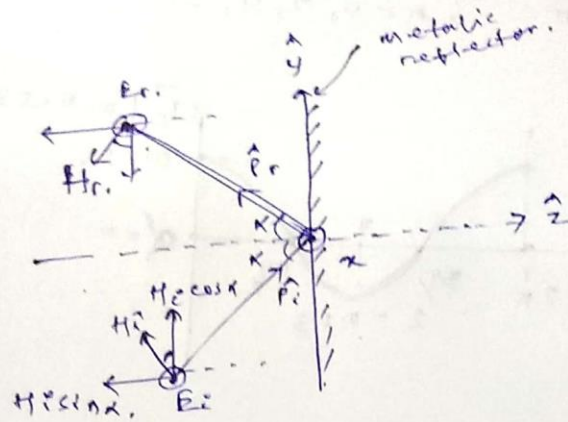 metalic
reflector.
ŷ
Er.
Hr.
p̂r
α
α
ẑ
x
p̂i
Hi cosα
Hi
Hi sinα.
Ei